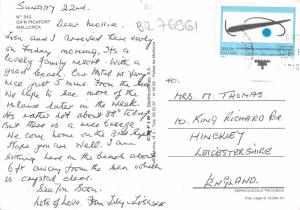 Nº 543
CA'N PICAFORT
MALLORCA
Sunday 22nd.
BZ 76961
Dear Mollie.
Ivan and I arrived here early
on Friday morning. Its a
lovely family resort. With a
good beach. Our Hotel is very
nice just 2 mins from the sea
We hope to see more of the
Island later in the week.
Its rather hot about 88° today
But there is a nice breeze.
We come home on the 3rd
Hope you are well. I am
sitting here on the beach about
6ft away from the sea which
is crystal clear.
See You Soon.
Lots of Love. From Lily
TO.
MRS. M. THOMAS
10. KING RICHARD RD.
HINCKLEY
LEICESTERSHIRE
ENGLAND.